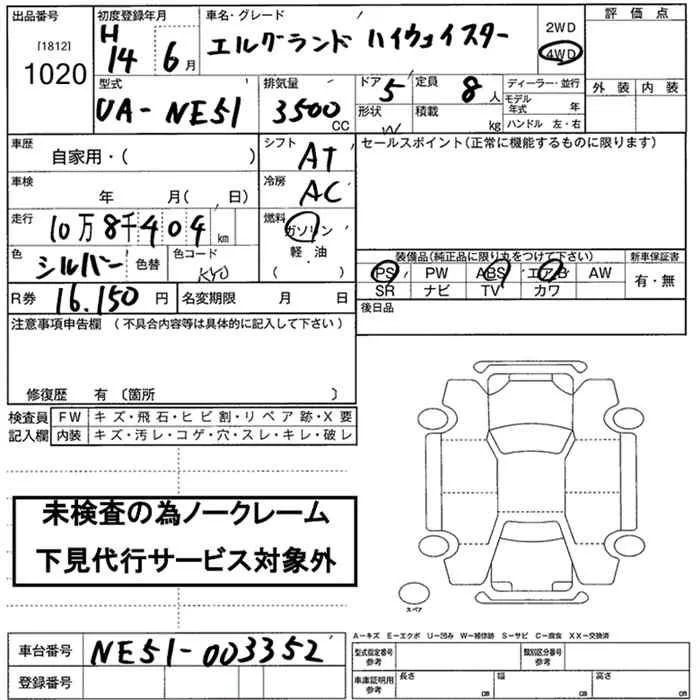 出品番号
[1812]
1020
初度登録年月
H 14 6月
車名・グレード
エルグランド ハイウェイスター
2WD
4WD
評価点
外装 内装
型式
UA-NE51
排気量
3500 CC
ドア 5
形状
定員 8 人
積載 kg
ディーラー・並行
モデル年式 年
ハンドル 左・右
車歴
自家用・( )
シフト AT
セールスポイント(正常に機能するものに限ります)
車検 年 月( 日)
冷房 AC
走行 10万8千409km
燃料 ガソリン・軽油( )
色 シルバー 色替
色コード KY0
装備品(純正品に限り丸をつけて下さい)
PS PW ABS エアB AW
SR ナビ TV カワ
新車保証書
有・無
R券 16.150 円
名変期限 月 日
後日品
注意事項申告欄(不具合内容等は具体的に記入して下さい)
修復歴 有(箇所 )
検査員記入欄
FW キズ・飛石・ヒビ割・リペア跡・X要
内装 キズ・汚レ・コゲ・穴・スレ・キレ・破レ
未検査の為ノークレーム
下見代行サービス対象外
スペア
A-キズ E-エクボ U-凹み W-補修跡 S-サビ C-腐食 XX-交換済
車台番号 NE51-003352
登録番号
型式指定番号 参考
類別区分番号 参考
車庫証明用 参考
長さ cm 幅 cm 高さ cm